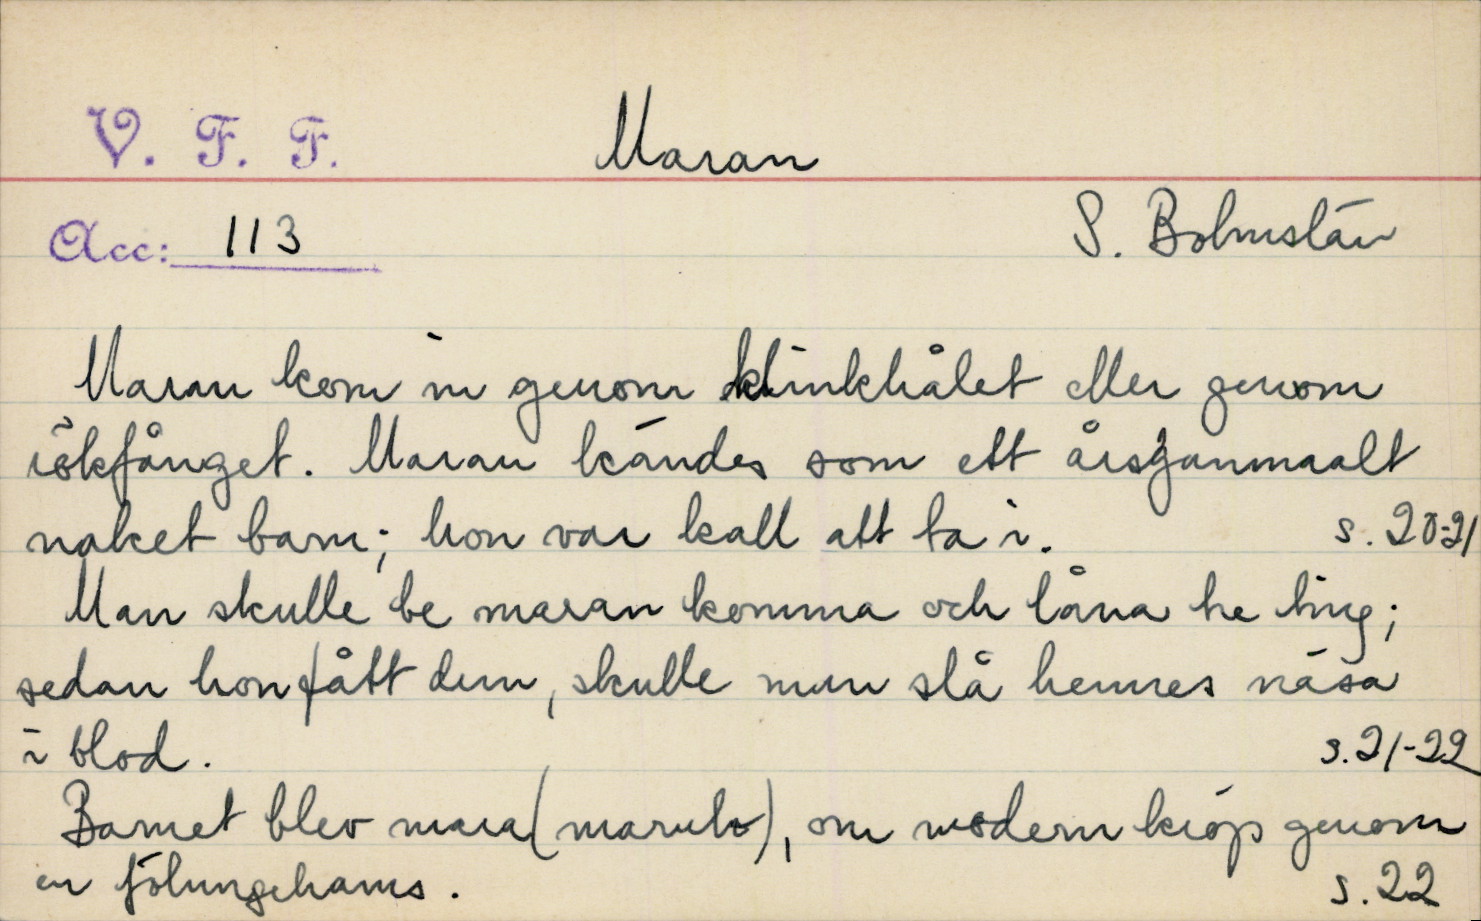 V. F. F. Maran
Acc: 113 S. Bolmslän
Maran kom in genom klinkhålet eller genom
rökfånget. Maran kändes som ett årsganmaalt
naket barn; hon var kall att ta i. s. 20-21
Man skulle be maran komma och låna tre ting;
sedan hon fått dem, skulle man slå hennes näsa
i blod. s. 21-22
Barnet blev mara (marulv), om modern kröp genom
en fölungehams. s. 22